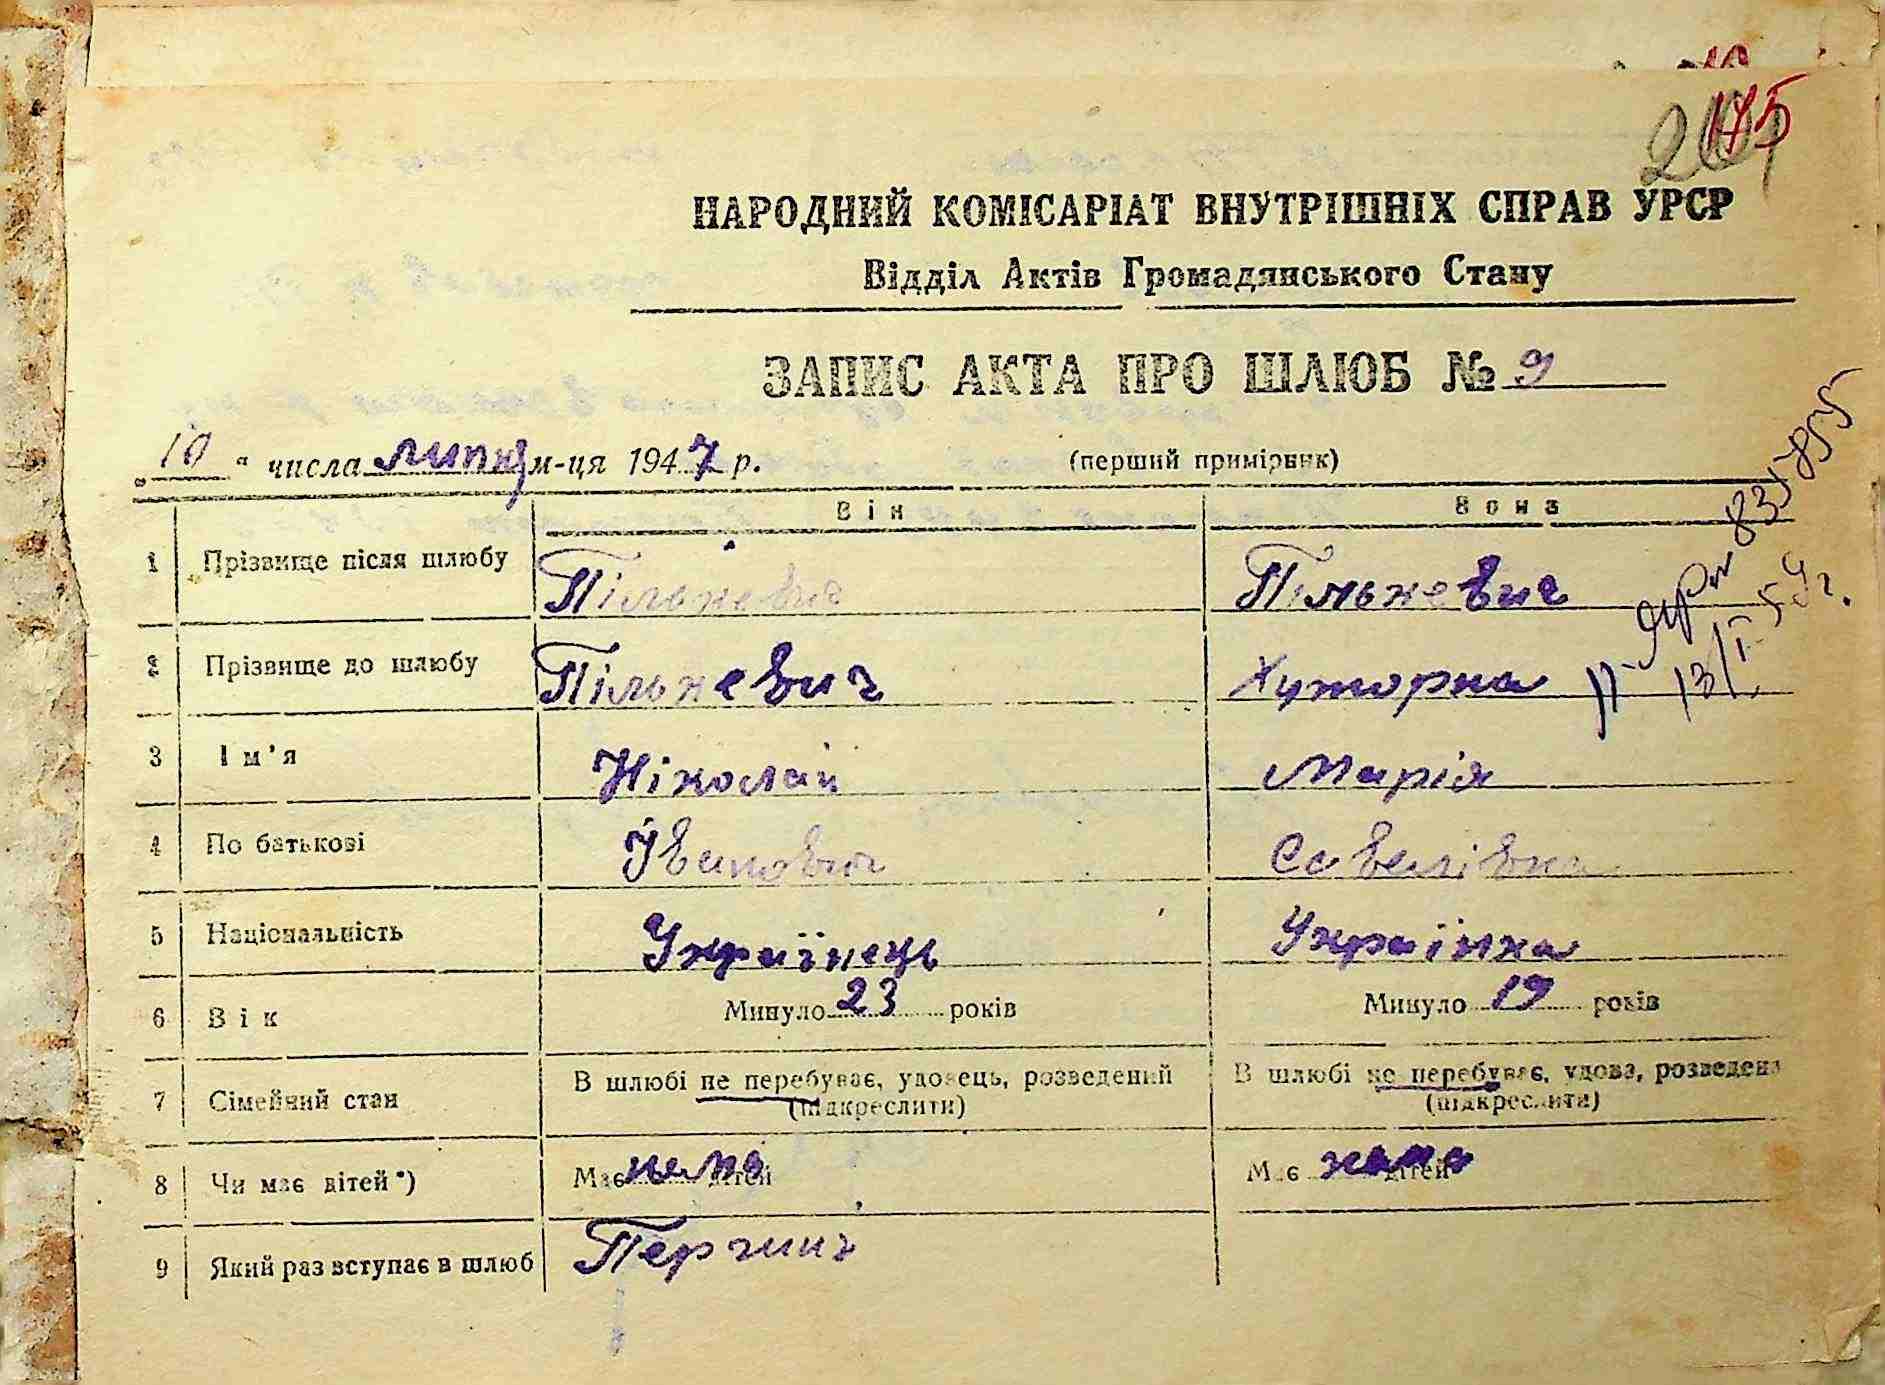 175
НАРОДНИЙ КОМІСАРІАТ ВНУТРІШНІХ СПРАВ УРСР
Відділ Актів Громадянського Стану
ЗАПИС АКТА ПРО ШЛЮБ № 9
„10" числа липня м-ця 1947 р. (перший примірник)
Він Вона
1 Прізвище після шлюбу Пількевич Пількевич
2 Прізвище до шлюбу Пількевич Хуторна
3 Ім'я Ніколай Марія
4 По батькові Іванович Савеліївна
5 Національність Українець Українка
6 Вік Минуло 23 років Минуло 19 років
7 Сімейний стан В шлюбі не перебуває, удовець, розведений В шлюбі не перебуває, удова, розведена
(підкреслити) (підкреслити)
8 Чи має дітей*) Має нема дітей Має нема дітей
9 Який раз вступає в шлюб
13/I 54 г.